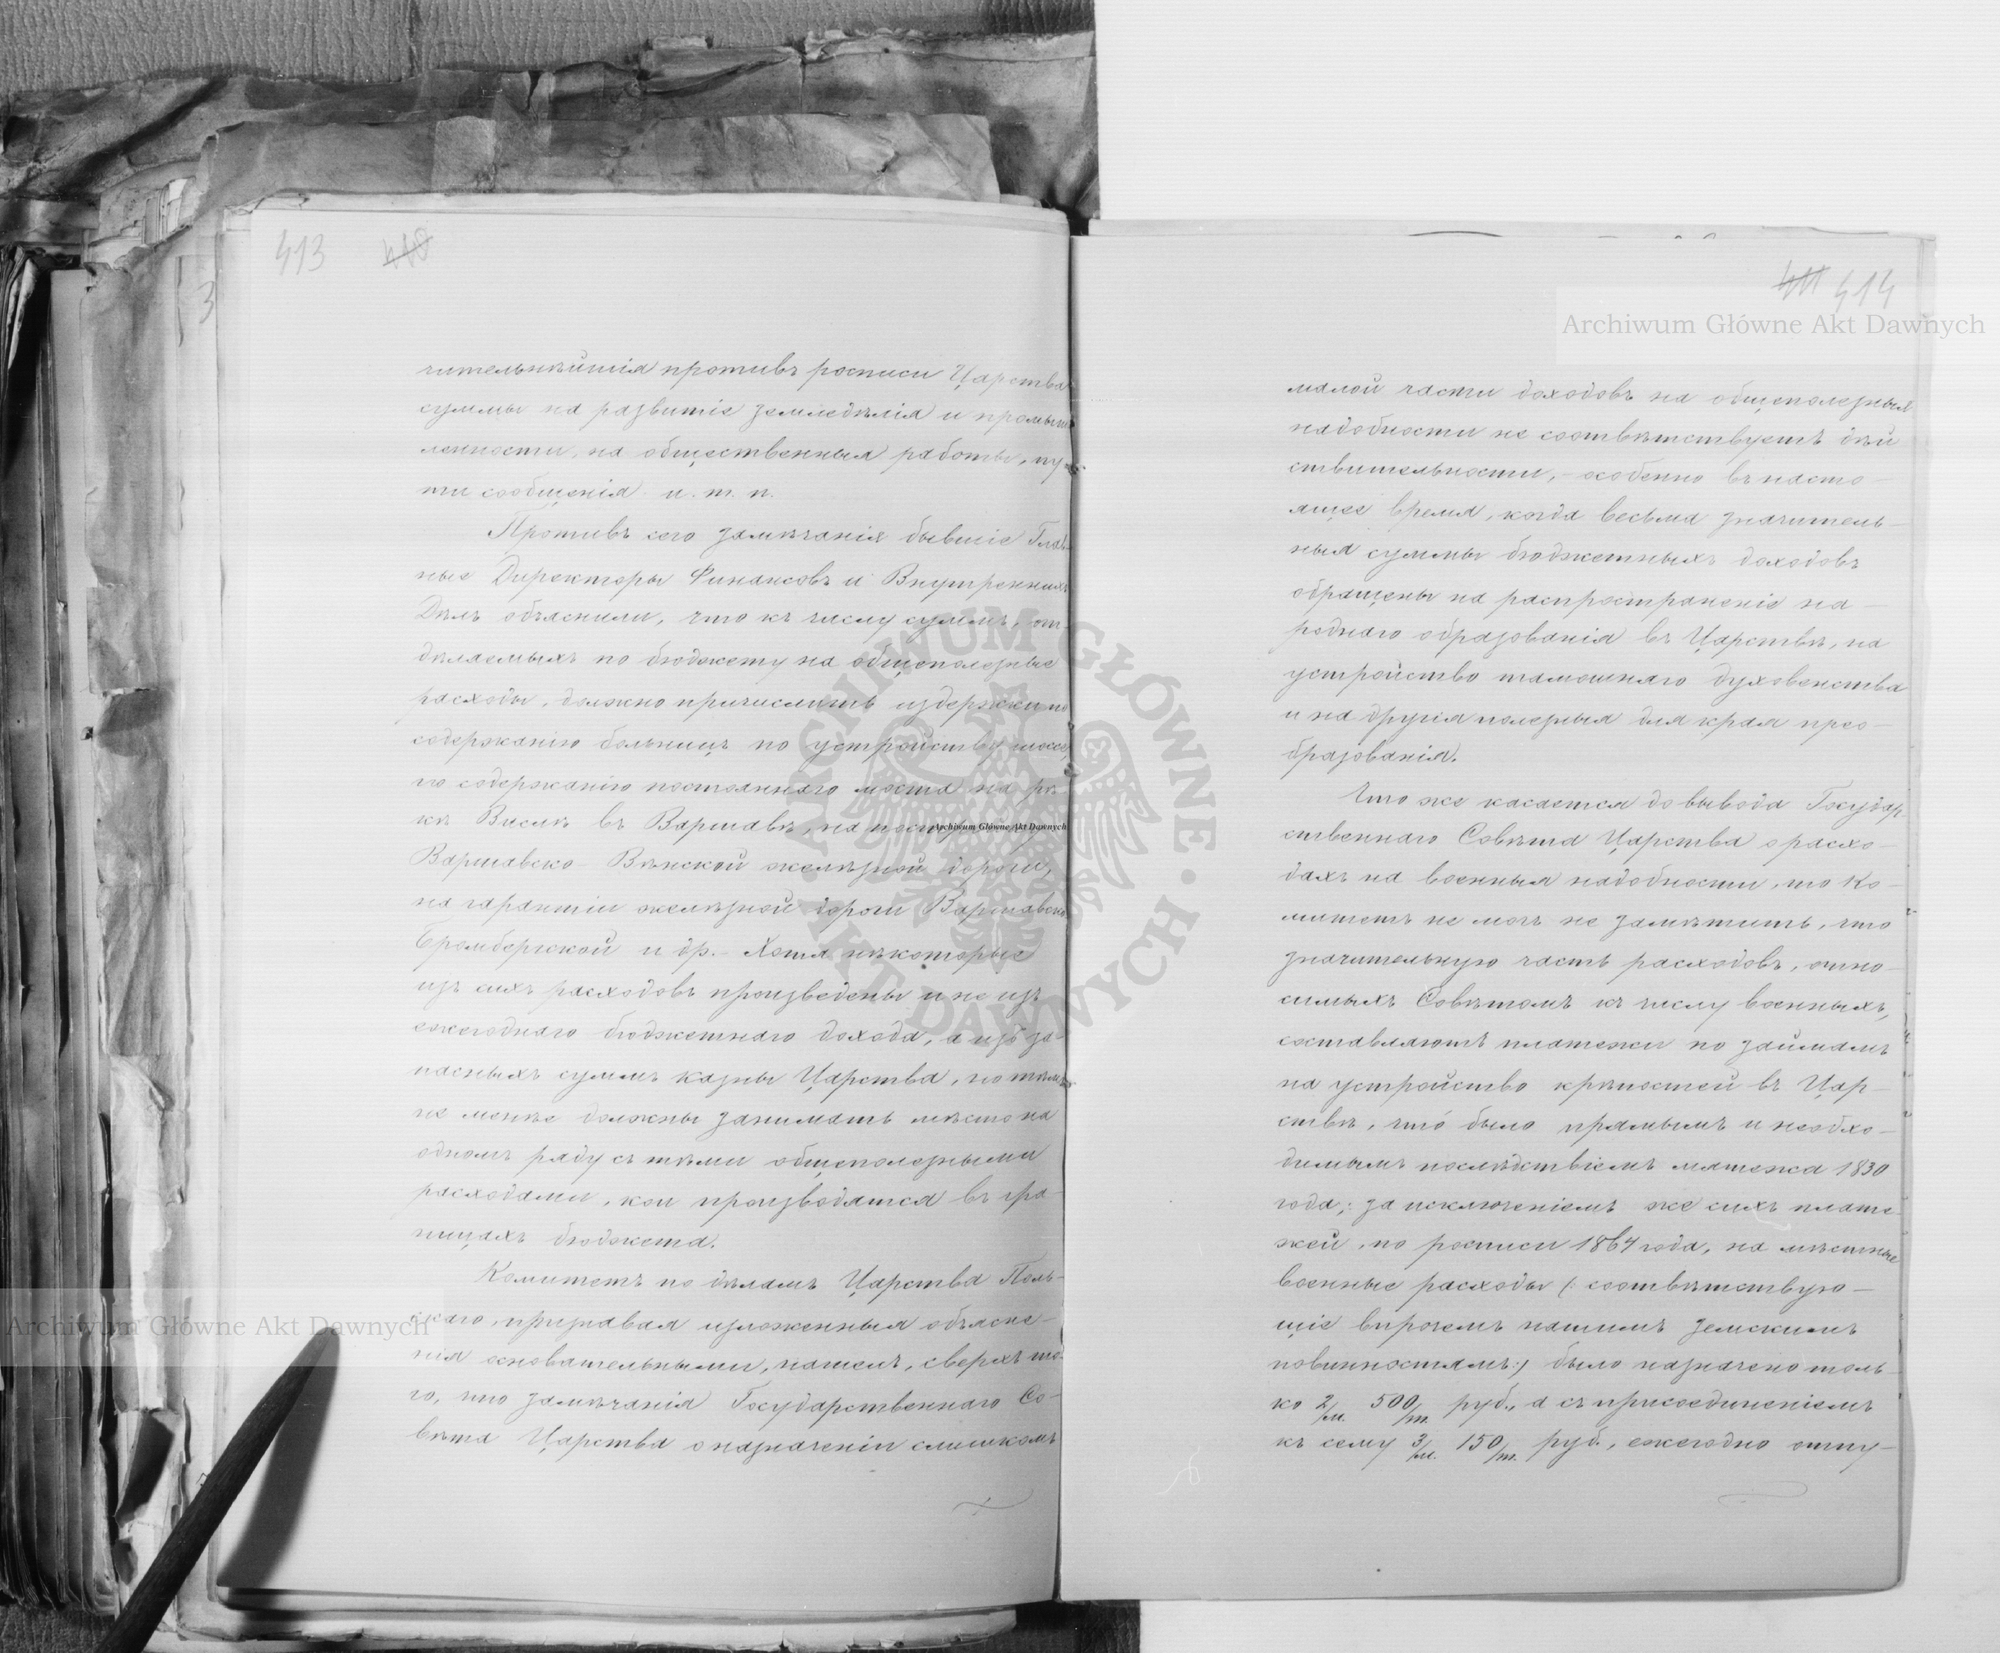 413 410
чительнѣйшія противъ росписи Царства
суммы на развитіе земледѣлія и промыш
ленности, на общественныя работы, пу
ти сообщенія и. т. п.
Противъ сего замѣчанія бывшіе Глав
ные Директоры Финансовъ и Внутреннихъ
Дѣлъ объяснили, что къ числу суммъ, от-
дѣляемыхъ по бюджету на общеполезные
расходы, должно причислить издержки по
содержанію больницъ по устройству шоссе,
по содержанію постояннаго моста на рѣ-
кѣ Вислѣ въ Варшавѣ, на
Варшавско-Вѣнской желѣзной дороги,
на гарантіи желѣзной дороги Варшавско
Бромбергской и др. Хотя нѣкоторые
изъ сихъ расходовъ произведены и не изъ
ежегоднаго бюджетнаго дохода, а изъ за-
пасныхъ суммъ казны Царства, но тѣмъ
не менѣе должны занимать мѣсто на
одномъ ряду съ тѣми общеполезными
расходами, кои производятся въ гра-
ницахъ бюджета.
Комитетъ по дѣламъ Царства Поль-
скаго, признавая изложенныя объясне-
нія основательными, нашелъ, сверхъ то-
го, что замѣчанія Государственнаго Со-
вѣта Царства о назначеніи слишкомъ
411 414
малой части доходовъ на общеполезныя
надобности не соотвѣтствуетъ дѣй
ствительности, - особенно въ насто-
ящее время, когда весьма значитель-
ныя суммы бюджетныхъ доходовъ
обращены на распространеніе на-
роднаго образованія въ Царствѣ, на
устройство тамошняго духовенства
и на другія полезныя для края прео-
бразованія.
Что же касается до вывода Государ-
ственнаго Совѣта Царства о расхо-
дахъ на военныя надобности, то Ко-
митетъ не могъ не замѣтить, что
значительную часть расходовъ, отно-
симыхъ Совѣтомъ къ числу военныхъ,
составляютъ платежи по займамъ
на устройство крѣпостей въ Цар-
ствѣ, что́ было прямымъ и необхо-
димымъ послѣдствіемъ мятежа 1830
года; за исключеніемъ же сихъ плате
жей, по росписи 1864 года, на мѣстные
военные расходы (: соотвѣтствую-
щіе впрочемъ нашимъ земскимъ
повинностямъ:) было назначено толь-
ко 2/м. 500/т. руб., а съ присоединеніемъ
къ сему 3/м. 150/т. руб., ежегодно отпу-
Archiwum Główne Akt Dawnych
Archiwum Główne Akt Dawnych
Archiwum Główne Akt Dawnych
ARCHIWUM GŁÓWNE · AKT DAWNYCH ·